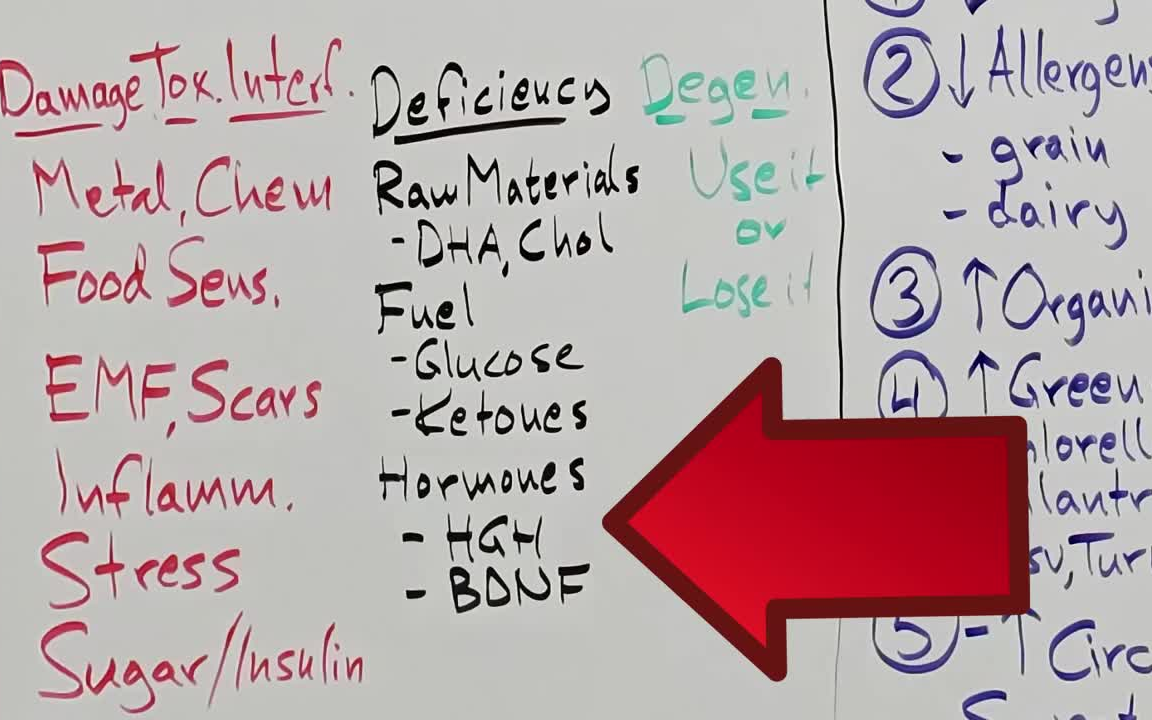 Damage Tox. Interf.
Metal, Chem
Food Sens.
EMF, Scars
Inflamm.
Stress
Sugar/Insulin
Deficiency
Raw Materials
- DHA, Chol
Fuel
- Glucose
- Ketones
Hormones
- HGH
- BDNF
Degen.
Use it
or
Lose it
② ↓ Allergens
- grain
- dairy
③ ↑ Organi
④ ↑ Green
lorell
lantr
Tur
⑤ - ↑ Circ